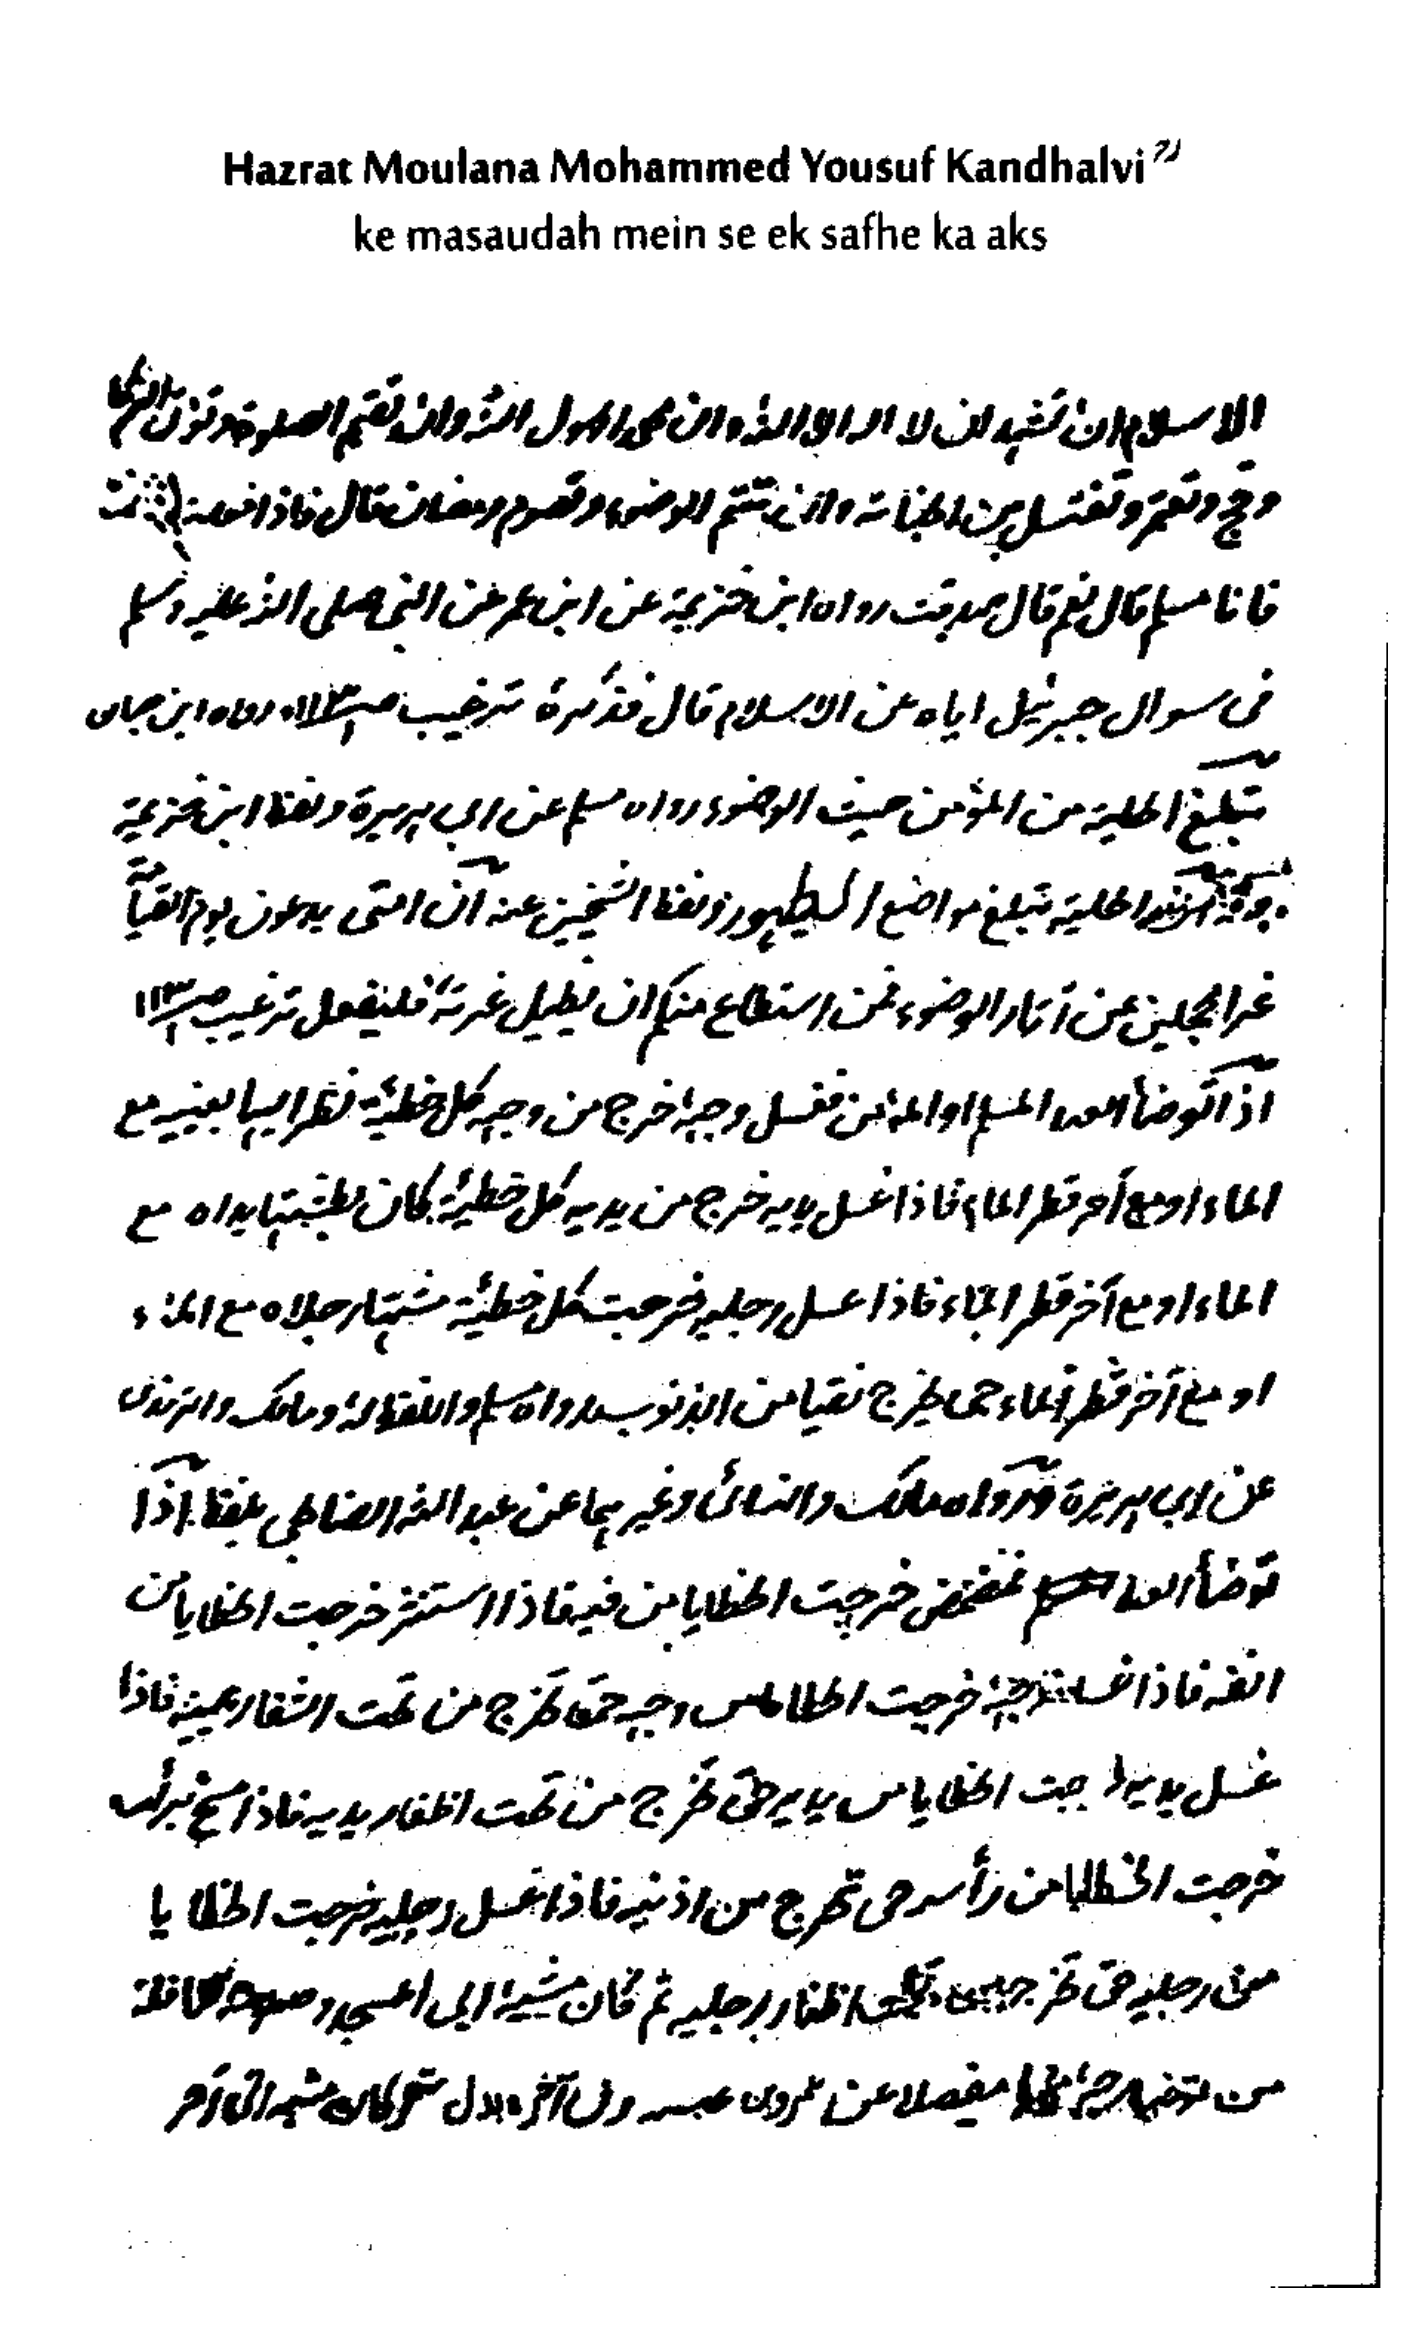 Hazrat Moulana Mohammed Yousuf Kandhalvi
ke masaudah mein se ek safhe ka aks
الاسلام ان تشهد ان لا اله الا الله وان محمدا رسول الله وان تقيم الصلوة وتؤتى الزكاة
وتحج وتعتمر وتغتسل من الجنابة وان تتم الوضوء وتصوم رمضان قال فاذا فعلت
فانا مسلم قال نعم قال صدقت رواه ابن خزيمة عن ابن عمر عن النبي صلى الله عليه وسلم
فى سوال جبرئيل اياه عن الاسلام قال فذكره ترغيب رواه ابن حبان
تبلغ الحلية من المؤمن حيث الوضوء رواه مسلم عن ابي هريرة ولفظ ابن خزيمة
الحلية تبلغ مواضع الطهور ولفظ الشيخين عنه ان امتى يدعون يوم القيامة
غرا محجلين من آثار الوضوء فمن استطاع منكم ان يطيل غرته فليفعل ترغيب
اذا توضأ العبد المسلم او المؤمن فغسل وجهه خرج من وجهه كل خطيئة نظر اليها بعينيه مع
الماء او مع آخر قطر الماء فاذا غسل يديه خرج من يديه كل خطيئة كان بطشتها يداه مع
الماء او مع آخر قطر الماء فاذا غسل رجليه خرجت كل خطيئة مشتها رجلاه مع الماء
او مع آخر قطر الماء حتى يخرج نقيا من الذنوب رواه مسلم واللفظ له ومالك والترمذى
عن ابي هريرة ورواه مالك والنسائى وغيرهما عن عبد الله الصنابحي بلفظ اذا
توضأ العبد فمضمض خرجت الخطايا من فيه فاذا استنثر خرجت الخطايا من
انفه فاذا غسل وجهه خرجت الخطايا من وجهه حتى تخرج من تحت اشفار عينيه فاذا
غسل يديه خرجت الخطايا من يديه حتى تخرج من تحت اظفار يديه فاذا مسح برأسه
خرجت الخطايا من رأسه حتى تخرج من اذنيه فاذا غسل رجليه خرجت الخطايا
من رجليه حتى تخرج من تحت اظفار رجليه ثم كان مشيه الى المسجد وصلوته نافلة
من مفصلا عن عمرو بن عبسه وفى آخره بدل ثم كان مشيه الى آخره